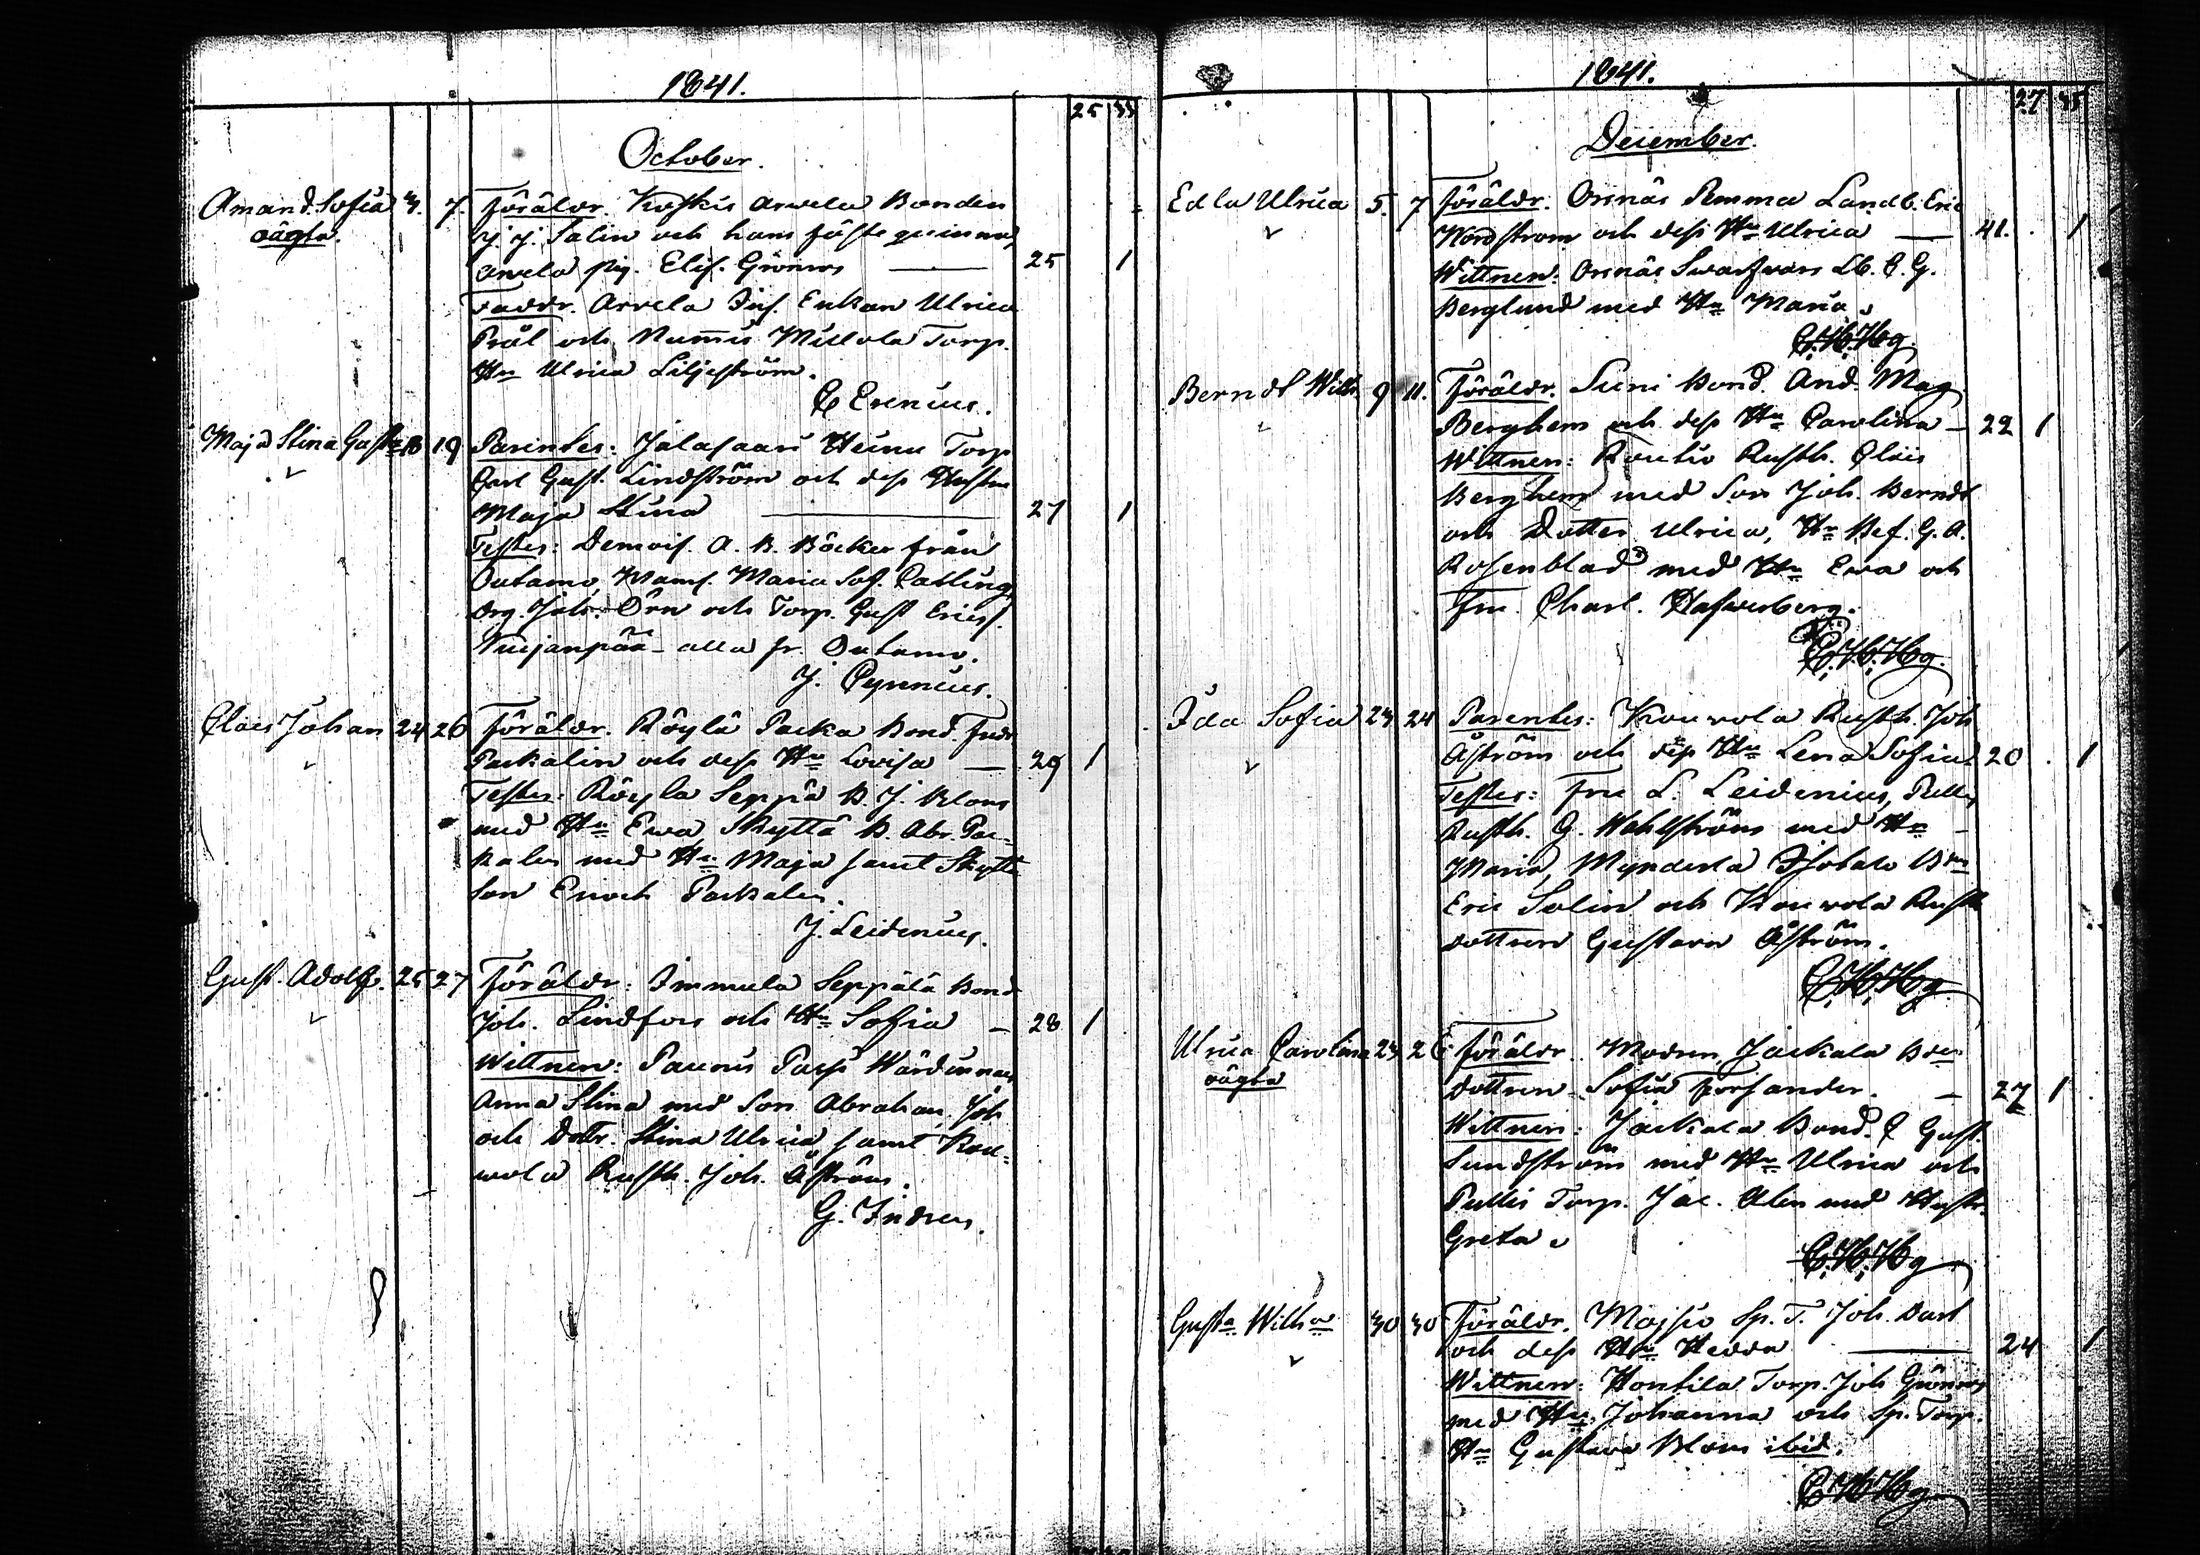 1841.
25 33
October.
Amand. Sofia 3. 7. Föräldr. Koskis Arvela Bonden
oägta. J. J. Salin och hans fästeqvinna,
Arvela pig. Elis. Grönros — 25 1
Faddr. Arvela Inh. Enkan Ulrica
Präl och Nummis Millola Torp.
Hu Ulrica Liljeström.
C Erenius.
Maja Stina Gusta 18 19 Parentes: Jalasaari Heinu Torp
Carl Gust. Lindström och dess Hustru
Maja Stina — 27 1
Testes: Demois. A. B. Böcker från
Outamo, Mams. Maria Sof. Catling,
Drg. Joh. Örn och Torp. Gust Erics.
Nuijanpää - alla fr. Outamo.
J. Cygnæus.
Claes Johan 24 26 Föräldr. Röylä Packa Bond. Fredr
Packalin och dess Hu Lovisa — 29 1
Testes: Röyla Seppä B. J. Blom
med Hu Ewa, Skyttä B. Abr. Pac-
kalen med Hu Maja samt Skyttä
Son Enoch Packalen.
J. Leidenius.
Gust. Adolf. 25 27 Föräldr: Immula Seppälä Bond
Joh. Lindfors och Hu Sofia — 28 1
Wittnen: Paunus Pass Wärdinnan
Anna Stina med Son Abraham Joh
och Dottr. Stina Ulrica, samt Kou-
vola Rusth. Joh. Åström.
G. Indren.
1841.
27 35
December.
Edla Ulrica 5. 7 Föräldr. Orsnäs Pemma Landb. Eric
Nordstrom och dess Hu Ulrica — 41. 1
Wittnen: Orsnäs Swartvars Lb. C. G.
Berglund med Hu Maria.
C. H. Hbg.
Berndt Wilh. 9 11. Föräldr. Suni Bond. And. Mag.
Berghem och dess Hu Carolina - 22 1
Wittnen: Routio Rusth. Claës
Berghem med Son Joh. Berndt
och Dotter Ulrica, Hr Bef. G. A.
Rosenblad med Hu Ewa och
Fru. Charl. Hafverberg.
C. H. Hbg.
Ida Sofia 23 24 Parentes: Kouvola Rusth. Joh
Åström och dess Hu Lena Sofia. 20 1
Testes: Fru L. Leidenius, Pullis
Rusth. G. Wahlström med Hu
Maria, Mynderla Isotalo Bdn
Eric Salin och Kouvola Rusth
dottren Gustava Åström.
C. H. Hbg
Ulrica Carolina 23 26 Föräldr. Modren, Jackala Bde
oägta dottren Sofia Forsander. — 27 1
Wittnen: Jackala Bond. C Gust.
Sundström med Hu Ulrica och
Pullis Torp. Jac. Alen med Hustr.
Greta.
C. H. Hbg
Gusta Wilh:a 30 30 Föräldr. Majsio Sp. T. Joh. Dahl
och dess Hu Hedda — 24 1
Wittnen: Hontila Torp. Joh Grönroos
med Hu Johanna och Sp. Torp.
Hu Gustava Blom ibid.
C H Hbg